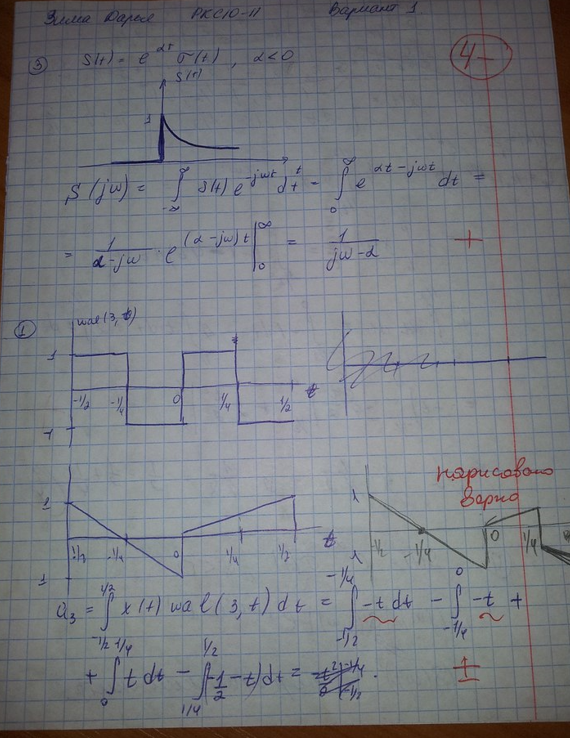 Зима Дарья РКС10-11 Вариант 1
4-
③ S(t) = e^{αt} σ(t), α<0
S(t)
1
t
S(jω) = ∫_{-∞}^{∞} s(t) e^{-jωt} dt = ∫_0^∞ e^{αt-jωt} dt =
= 1/(α-jω) · e^{(α-jω)t} |_0^∞ = 1/(jω-α) +
① wal(3, t)
1
-1/2 -1/4 0 1/4 1/2 t
-1
нарисовано
верно
1
-1/4 0 1/4 1/2 t
1
1/2 -1/4 0 1/4
a₃ = ∫_{-1/2}^{1/2} x(t) wal(3, t) dt = ∫_{-1/2}^{-1/4} -t dt - ∫_{-1/4}^{0} -t +
+ ∫_0^{1/4} t dt - ∫_{1/4}^{1/2} (-1/2 - t) dt = ±